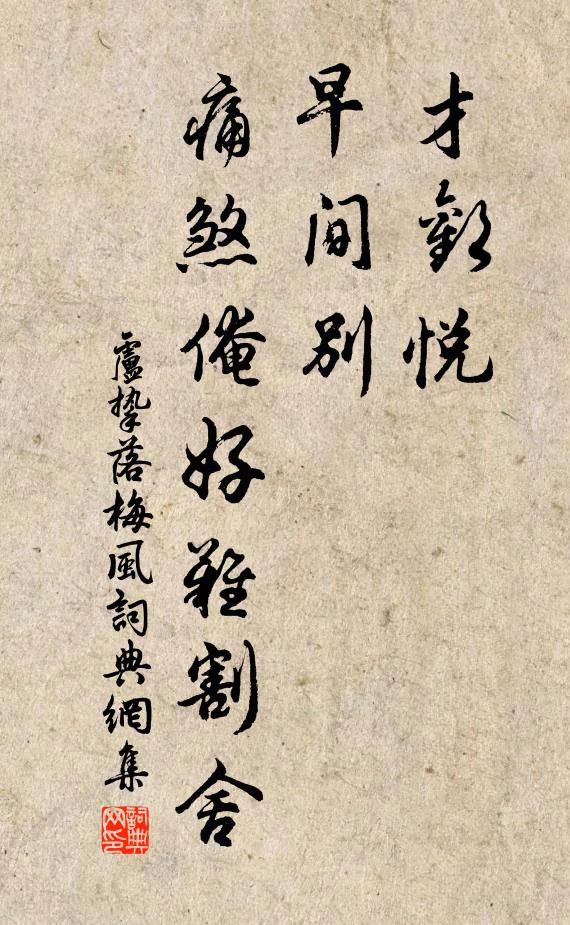 才歡悅
早間別
痛煞俺好難割舍
盧摯落梅風詞典網集
詞典網印